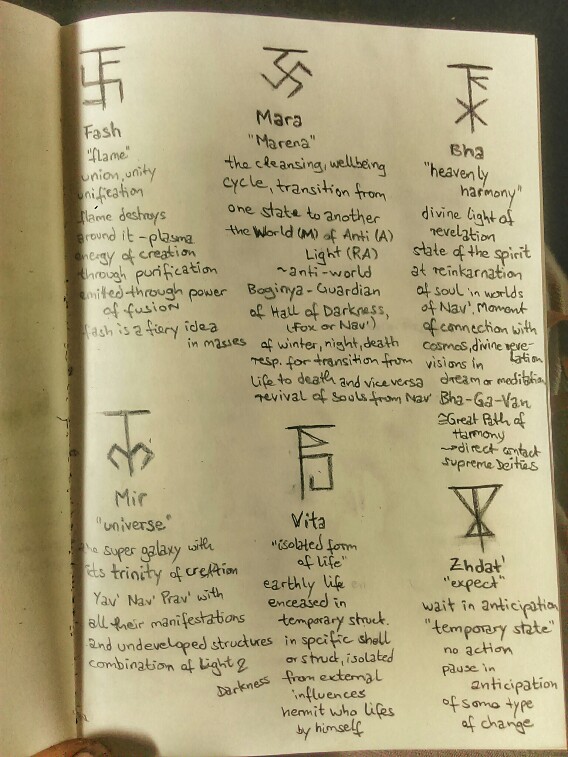 Fash
"flame"
union, unity
unification
flame destroys
around it - plasma
energy of creation
through purification
emitted through power
of fusion
fash is a fiery idea
in masses
Mara
"Marena"
the cleansing, wellbeing
cycle, transition from
one state to another
the World (M) of Anti (A)
Light (RA)
~anti-world
Boginya-Guardian
of Hall of Darkness,
(Fox or Nav')
of winter, night, death
resp. for transition from
life to death and viceversa
revival of souls from Nav'
Bha
"heavenly
harmony"
divine light of
revelation
state of the spirit
at reinkarnation
of soul in worlds
of Nav'. Moment
of connection with
cosmos, divine reve-
lation
visions in
dream or meditation
Bha-Ga-Van
≅Great Path of
Harmony
→direct contact
supreme Deities
Mir
"universe"
the super galaxy with
its trinity of creation
Yav' Nav' Prav' with
all their manifestations
and undeveloped structures
combination of Light &
Darkness
Vita
"isolated form
of life"
earthly life
enceased in
temporary struct.
in spcific shell
or struct, isolated
from external
influences
hermit who lifes
by himself
Zhdat'
"expect"
wait in anticipation
"temporary state"
no action
pause in
anticipation
of some type
of change